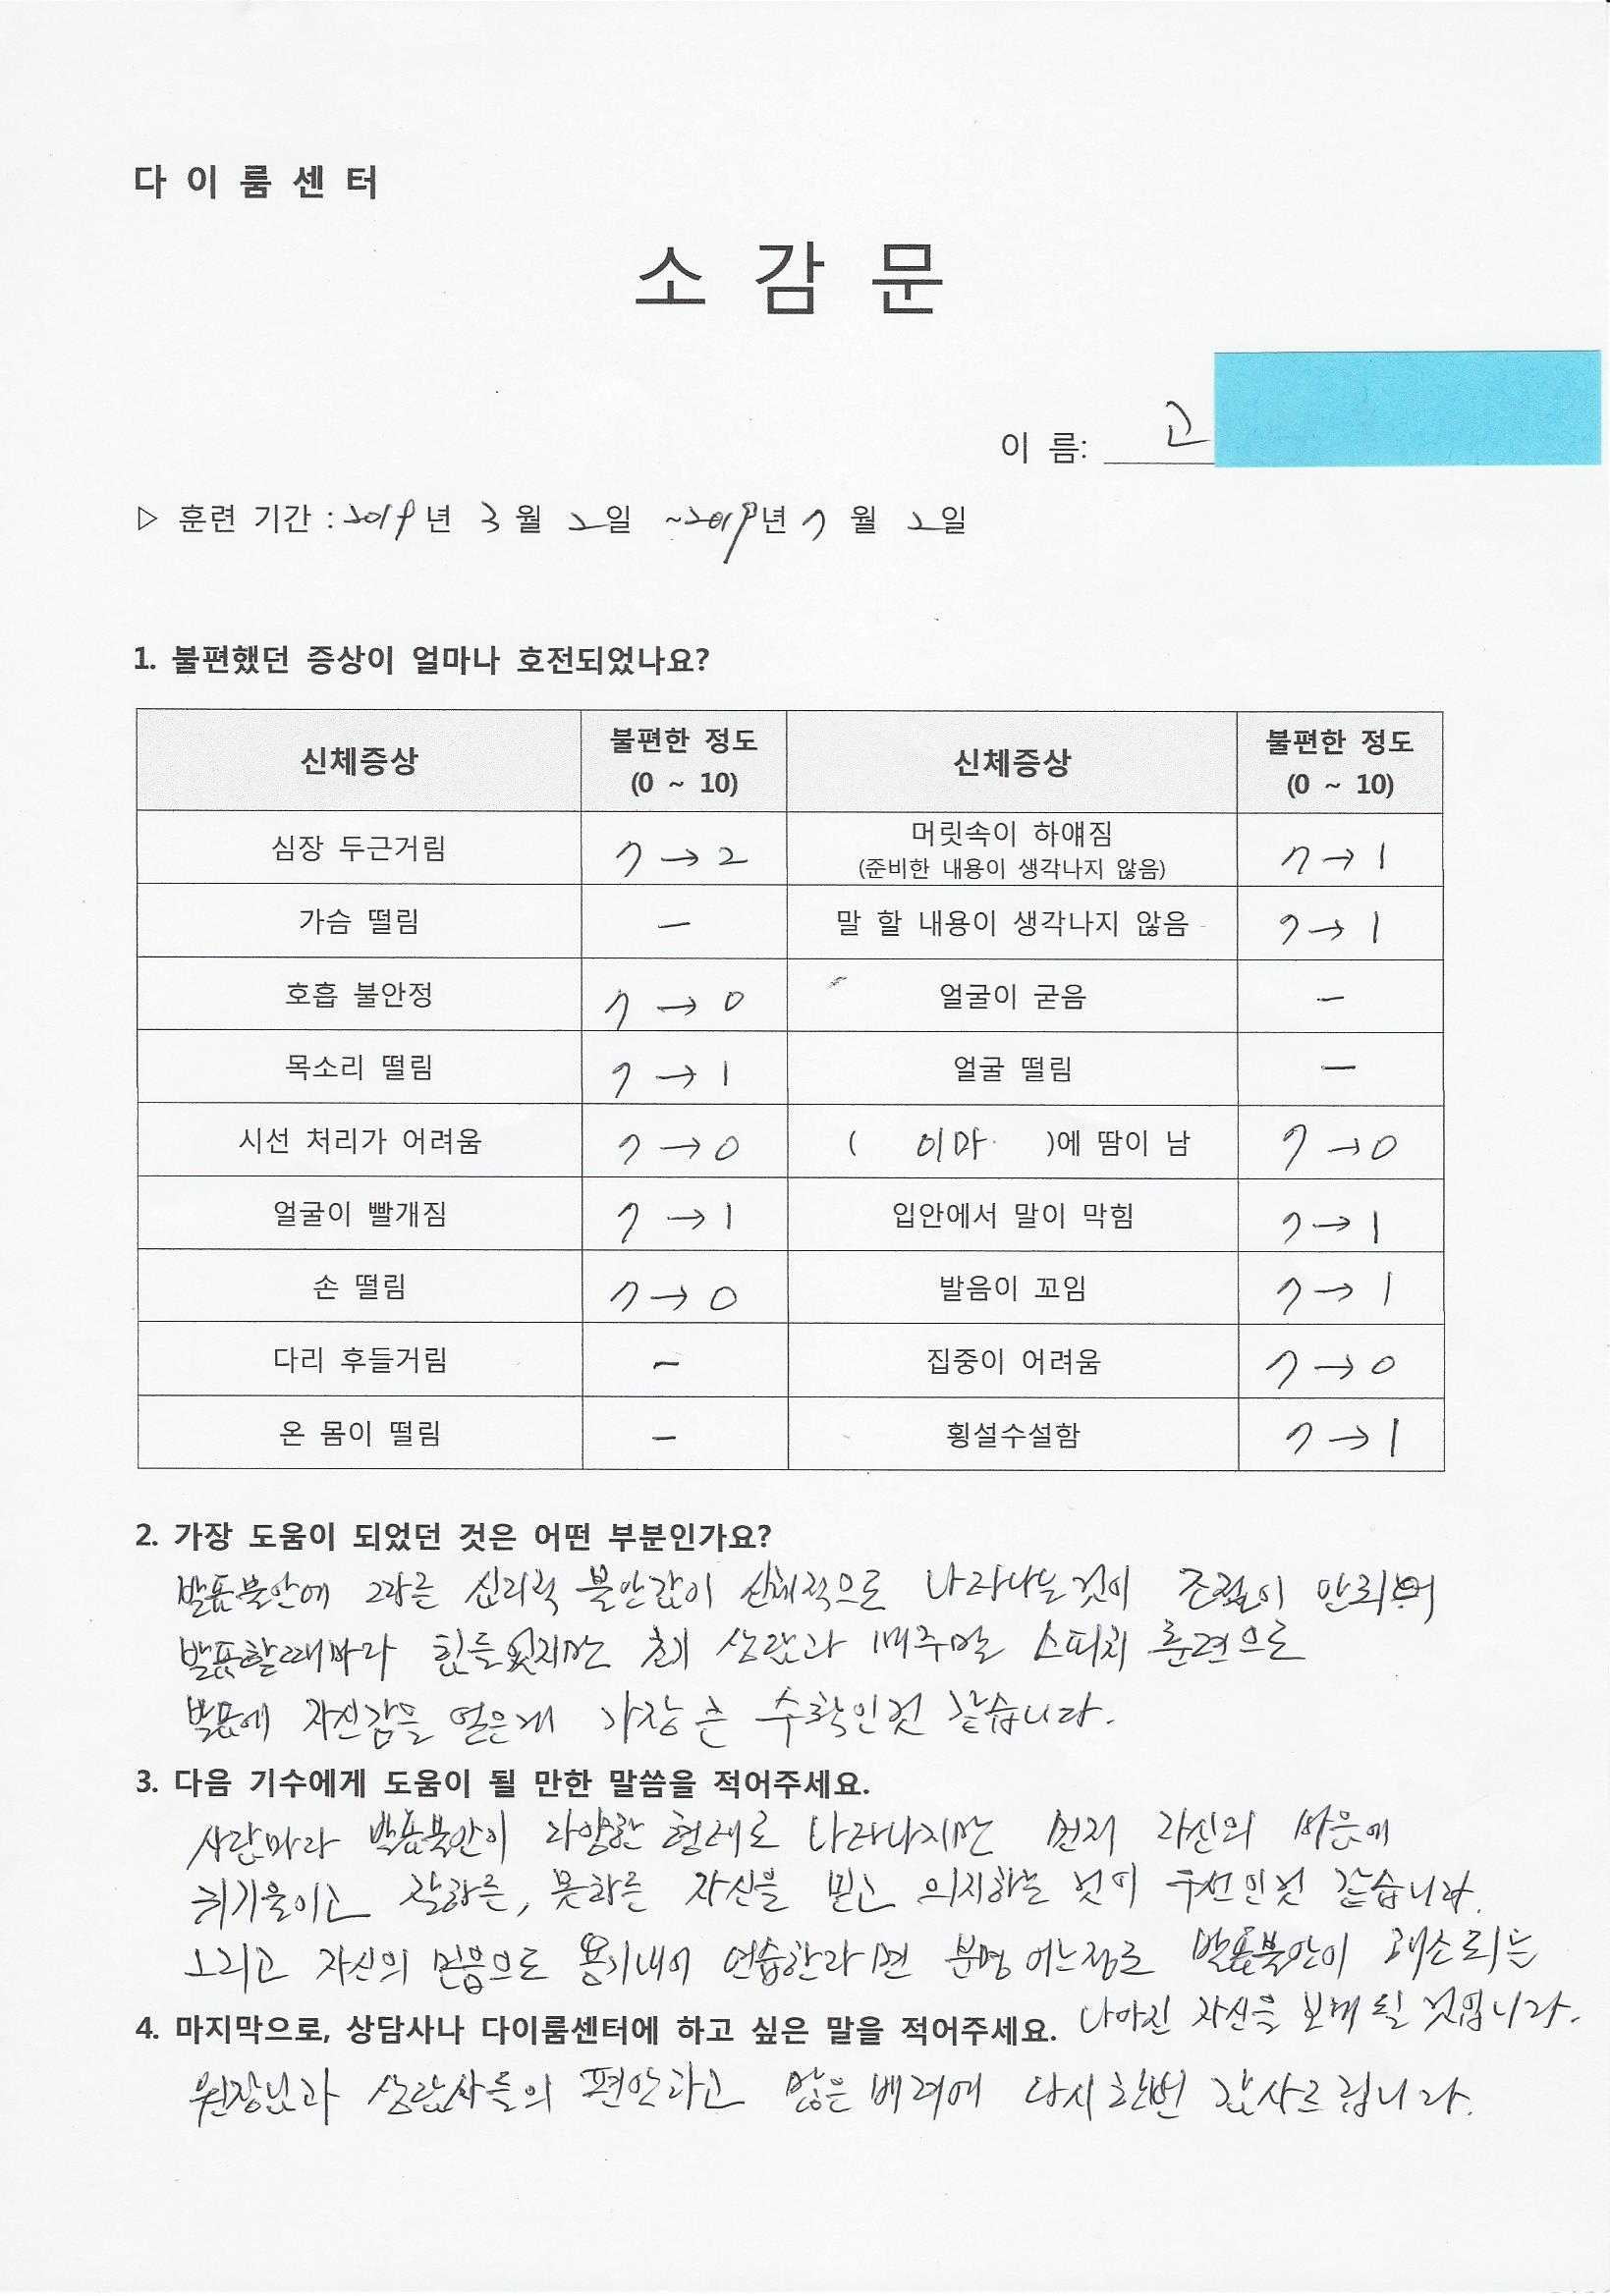 다이룸센터
소감문
이 름: 고
▷ 훈련 기간 : 2019년 3월 2일 ~2019년 7월 2일
1. 불편했던 증상이 얼마나 호전되었나요?
신체증상 불편한 정도 (0 ~ 10) 신체증상 불편한 정도 (0 ~ 10)
심장 두근거림 7 → 2 머릿속이 하얘짐 (준비한 내용이 생각나지 않음) 7 → 1
가슴 떨림 - 말 할 내용이 생각나지 않음 7 → 1
호흡 불안정 7 → 0 얼굴이 굳음 -
목소리 떨림 7 → 1 얼굴 떨림 -
시선 처리가 어려움 7 → 0 ( 이마 )에 땀이 남 7 → 0
얼굴이 빨개짐 7 → 1 입안에서 말이 막힘 7 → 1
손 떨림 7 → 0 발음이 꼬임 7 → 1
다리 후들거림 - 집중이 어려움 7 → 0
온 몸이 떨림 - 횡설수설함 7 → 1
2. 가장 도움이 되었던 것은 어떤 부분인가요?
발표불안에 따른 심리적 불안감이 신체적으로 나타나는것이 조절이 안되어
발표할때마다 힘들었지만 초기 상담과 매주말 스피치 훈련으로
발표에 자신감을 얻은게 가장 큰 수확인것 같습니다.
3. 다음 기수에게 도움이 될 만한 말씀을 적어주세요.
사람마다 발표불안이 다양한 형태로 나타나지만 먼저 자신의 마음에
귀기울이고 잘하든, 못하든 자신을 믿고 의지하는 것이 우선인것 같습니다.
그리고 자신의 믿음으로 용기내어 연습한다면 분명 어느정도 발표불안이 해소되는
나아진 자신을 보게 될 것입니다.
4. 마지막으로, 상담사나 다이룸센터에 하고 싶은 말을 적어주세요.
원장님과 상담사들의 편안하고 많은 배려에 다시한번 감사드립니다.